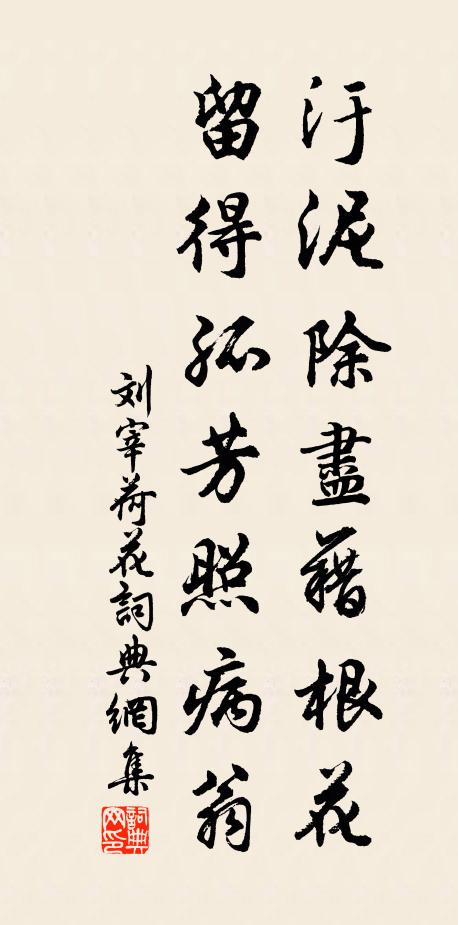 汙泥除盡藉根花
留得孤芳照病翁
刘宰荷花詞典網集
詞典網印